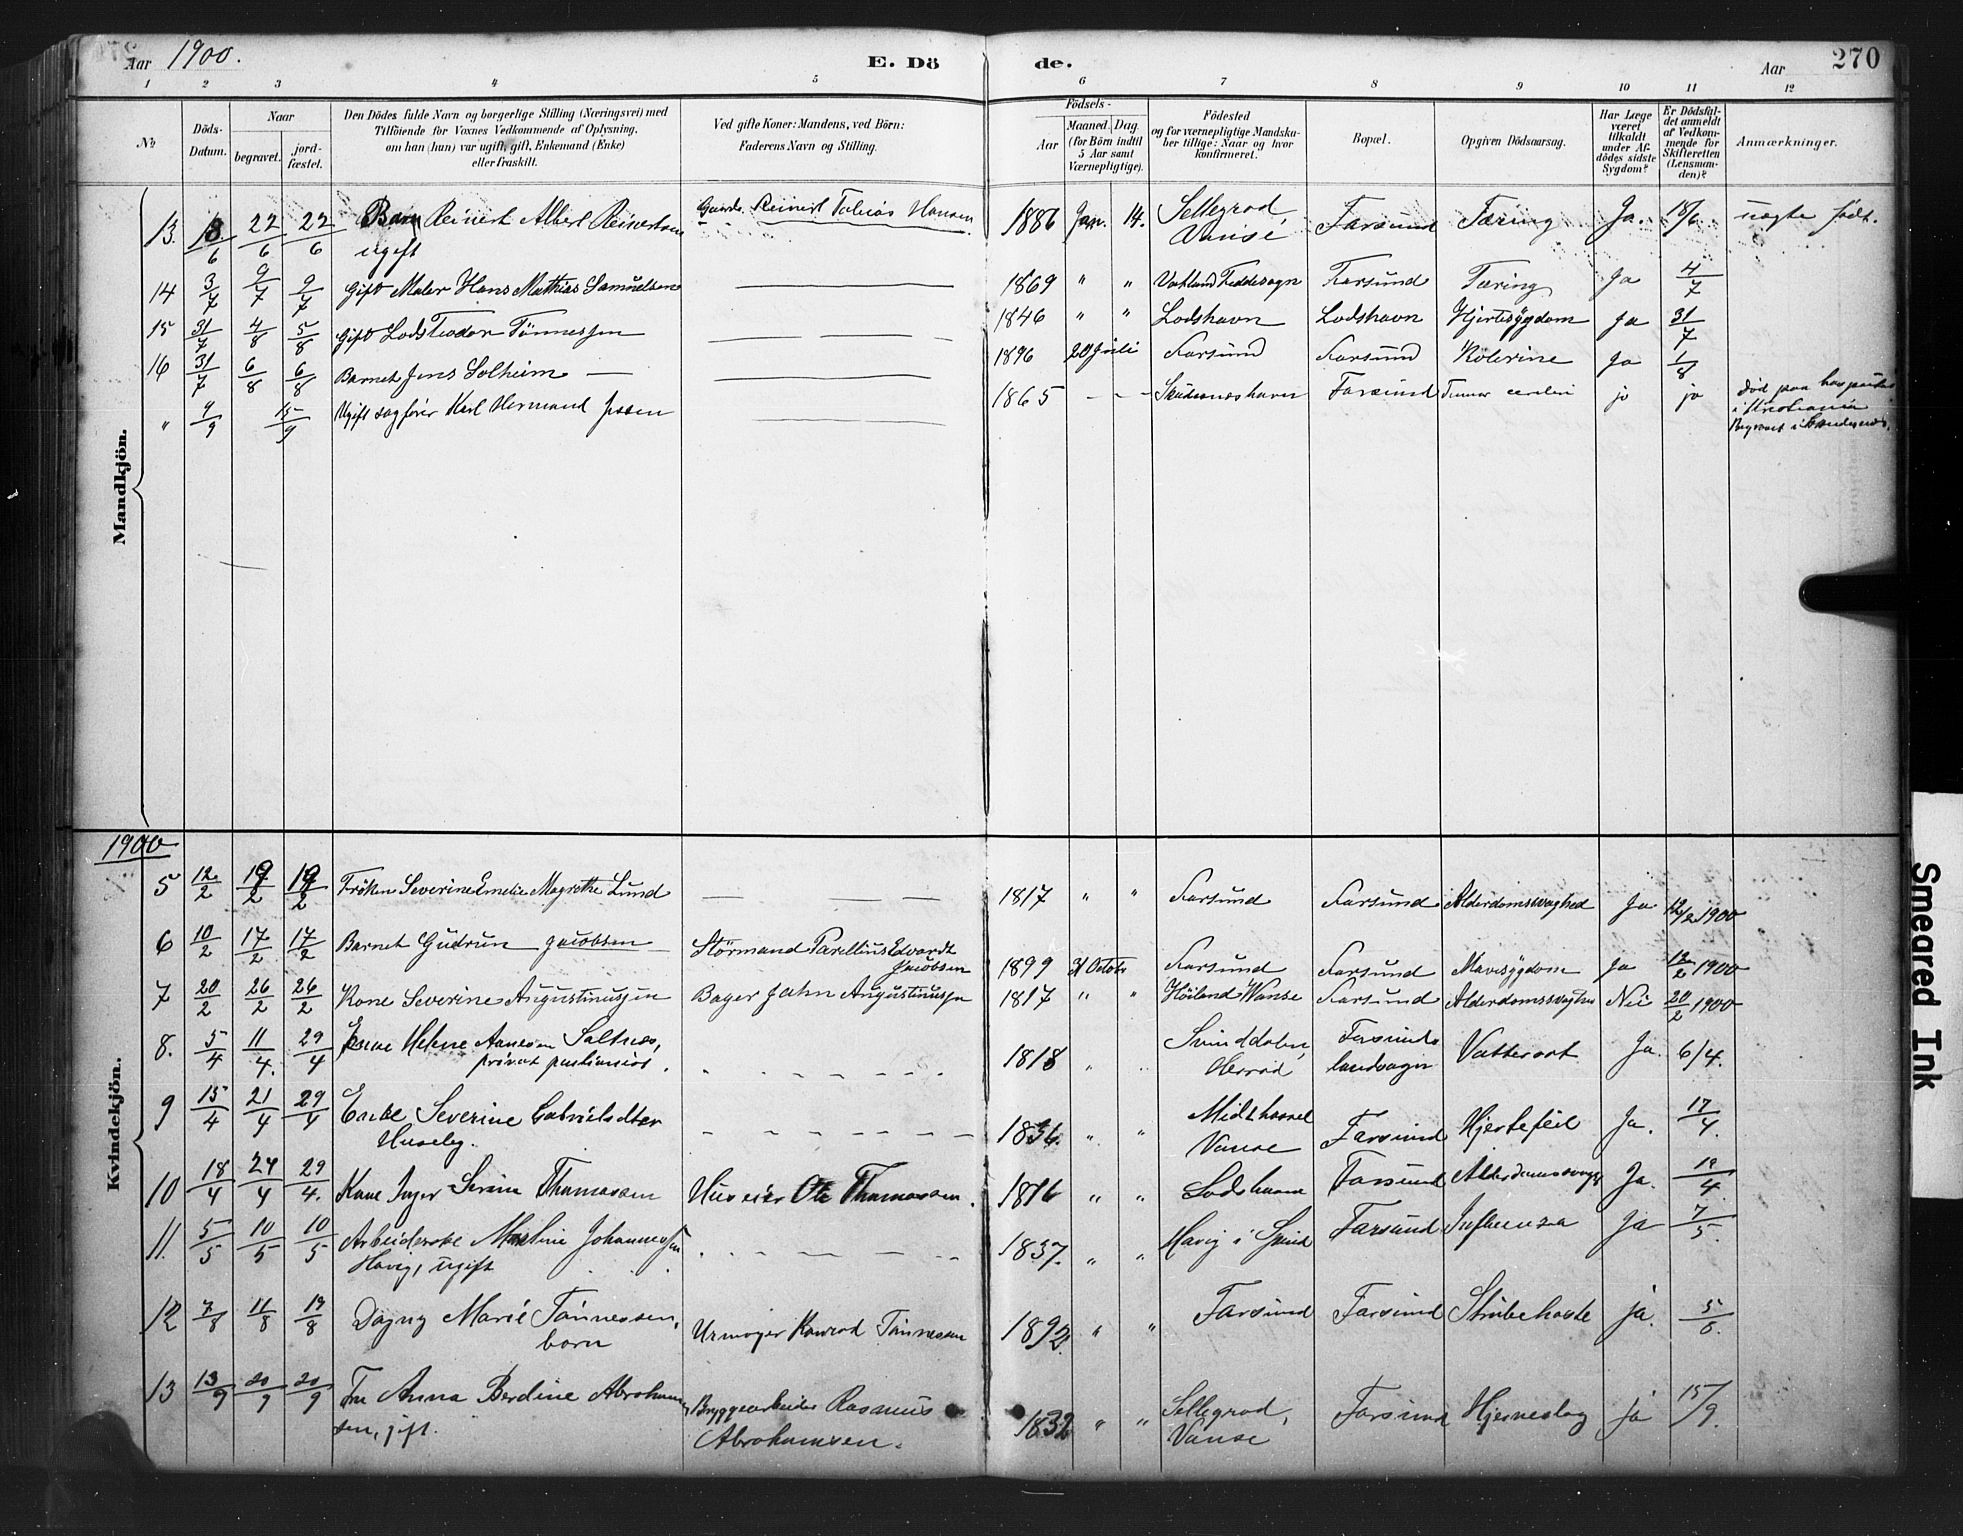 Aar 1900. E. Dö de. Aar 270
1 2 3 4 5 6 7 8 9 10 11 12
No
Döds-Datum.
Naar
begravet.
jord-fæstet.
Den Dödes fulde Navn og borgerlige Stilling (Næringsvei) med
Tilföiende for Voxnes Vedkommende af Oplysning,
om han (hun) var ugift, gift, Enkemand (Enke)
eller fraskilt.
Ved gifte Koner: Mandens, ved Börn:
Faderens Navn og Stilling.
Födsels-
Aar
Maaned. Dag
(for Börn indtil
5 Aar samt
Værnepligtige).
Födested
og for værnepligtige Mandska-
ber tillige: Naar og hvor
konfirmeret.
Bopæl.
Opgiven Dödsaarsag.
Har Læge
været
tilkaldt
under Af-
dödes sidste
Sygdom?
Er Dödsfal-
det anmeldt
af Vedkom-
mende for
Skifteretten
(Lensman-
den)?
Anmærkninger.
Mandkjön.
13. 18/6 22/6 22/6 Barn Reinert Albert Reinertsen Gaardb. Reinert Tobias Hansen 1886 Jan. 14. Sellegrod, Farsund Tæring Ja. 18/6 uægte födt.
ugift Vanse
14 3/7 9/7 9/7 Gift Maler Hans Mathias Samuelsen 1869 " " Vatland Feddesogn Farsund Tæring Ja 4/7
15 31/7 4/8 5/8 Gift Lods Teodor Tönnessen 1846 " " Lodshavn Lodshavn Hjertesygdom Ja 31/7
16 31/7 6/8 6/8 Barnet Jens Solheim 1896 20 Juli Farsund Farsund Kolerine Ja 1/8
" 9/9 15/9 Ugift sagförer Karl Hermand Jessen 1865 Skudesneshavn Farsund Tumor cerebri ja ja död paa hospitalet
i Kristiania
Begravet i Skudesnes.
1900
Kvindekjön.
5 12/2 19/2 19/2 Fröken Severine Emelie Magrethe Lund 1817 " " Farsund Farsund Alderdomssvaghed Ja 12/2 1900
6 10/2 17/2 17/2 Barnet Gudrun Jacobsen Störmand Parellius Edvardt
Jacobsen 1899 31 Octobr Farsund Farsund Mavesygdom Ja 12/2 1900
7 20/2 26/2 26/2 Kone Severine Augustinussen Bager Jahn Augustinussen 1817 " " Höiland Wanse Farsund Alderdomssvaghed Nei 20/2 1900
8. 5/4 11/4. 29/4 Enke Helene Aanesen Saltnes, 1818 " " Svinddalen, Farsunds Vattersot Ja. 6/4.
privat pustionist. Herrad landsogn
9 15/4 21/4 29/4 Enke Severine Gabrielsdter 1836. " " Midthassel Farsund Hjertefeil Ja. 17/4.
Huseby. Vanse
10 18/4 24/4 29/4. Kone Inger Serine Thomassen Huseier Ole Thomassen. 1816 " " Lodshavn Farsund Alderdomssvagh Ja. 19/4.
11. 5/5 10/5 10/5 Arbeiderske Maline Johannessen 1837. " " Havig i Spind Farsund Influensa Ja 7/5.
Havig, ugift
12 7/8 11/8 19/8 Dagny Marie Tönnessen, Urmager Konrad Tönnessen 1892. " " Farsund Farsund Strubehoste ja. 5/8.
barn
13 13/9 20/9 20/9 Fru Anna Berdine Abraham- Bryggearbeider Rasmus 1832 " " Sellegrod, Farsund Hjerneslag ja 15/9.
sen, gift. Abrahamsen. Vanse
Smeared Ink